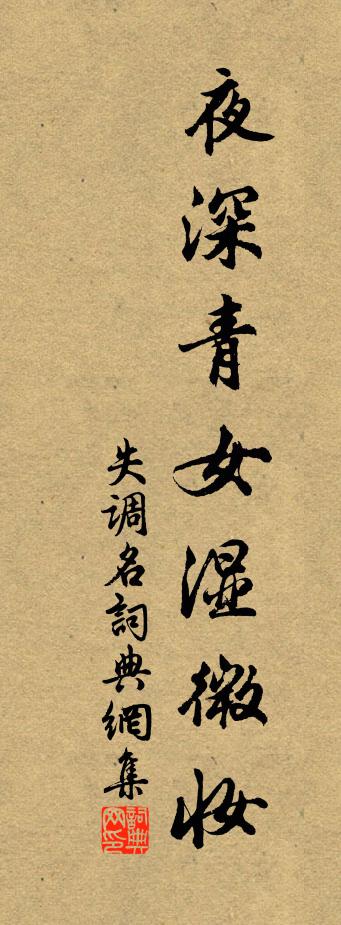 夜深青女湿微妆
失調名詞典網集
詞典网印